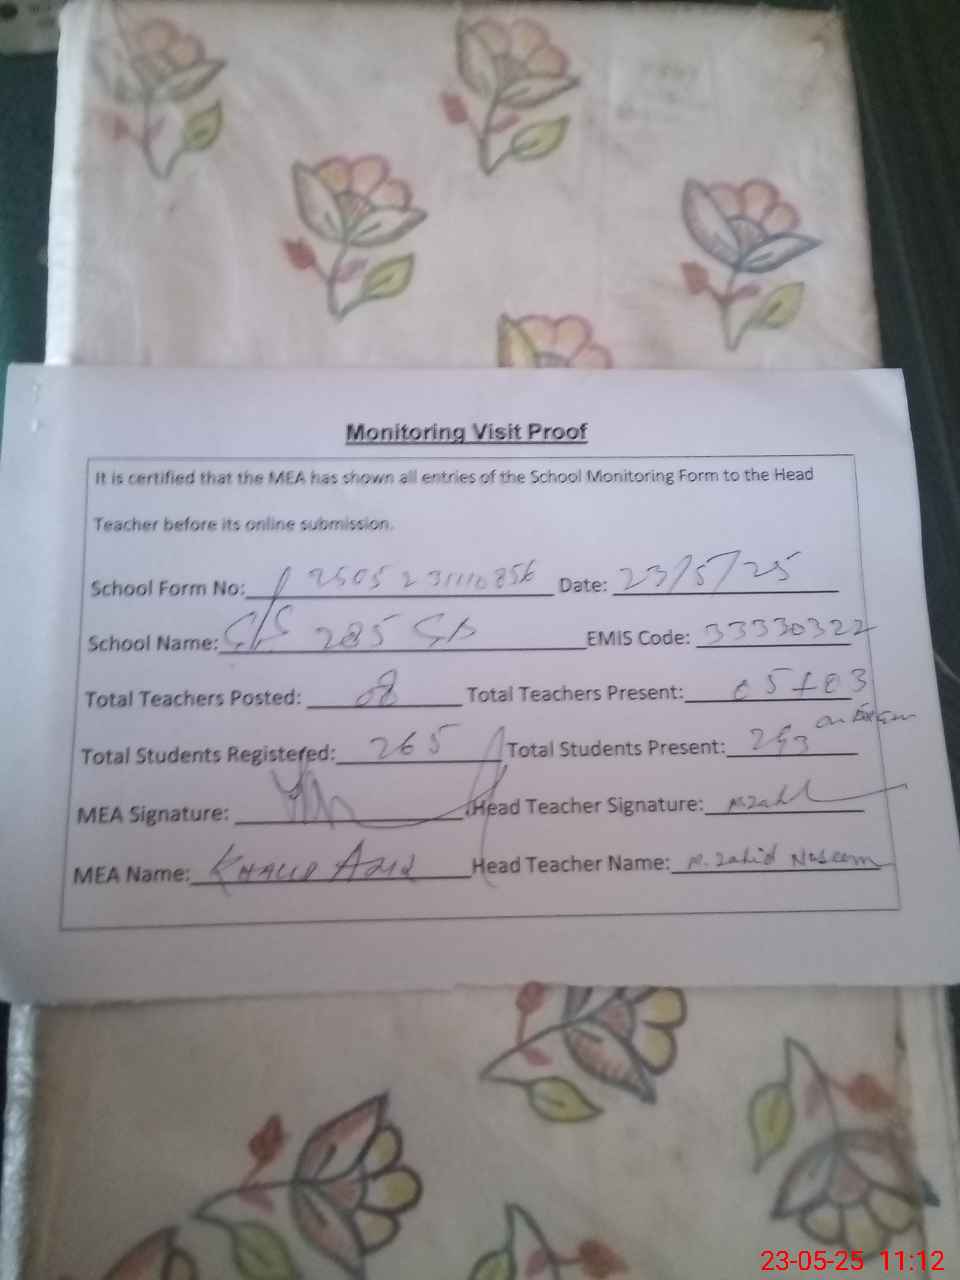 Monitoring Visit Proof
It is certified that the MEA has shown all entries of the School Monitoring Form to the Head
Teacher before its online submission.
School Form No: 2505231110856 Date: 23/5/25
School Name: 285 EMIS Code: 33330322
Total Teachers Posted: 08 Total Teachers Present: 05+03
on Exam
Total Students Registered: 265 Total Students Present:
MEA Signature: Head Teacher Signature: M.Zahid
MEA Name: KHALID AZIZ Head Teacher Name: M. Zahid Naseem
23-05-25 11:12